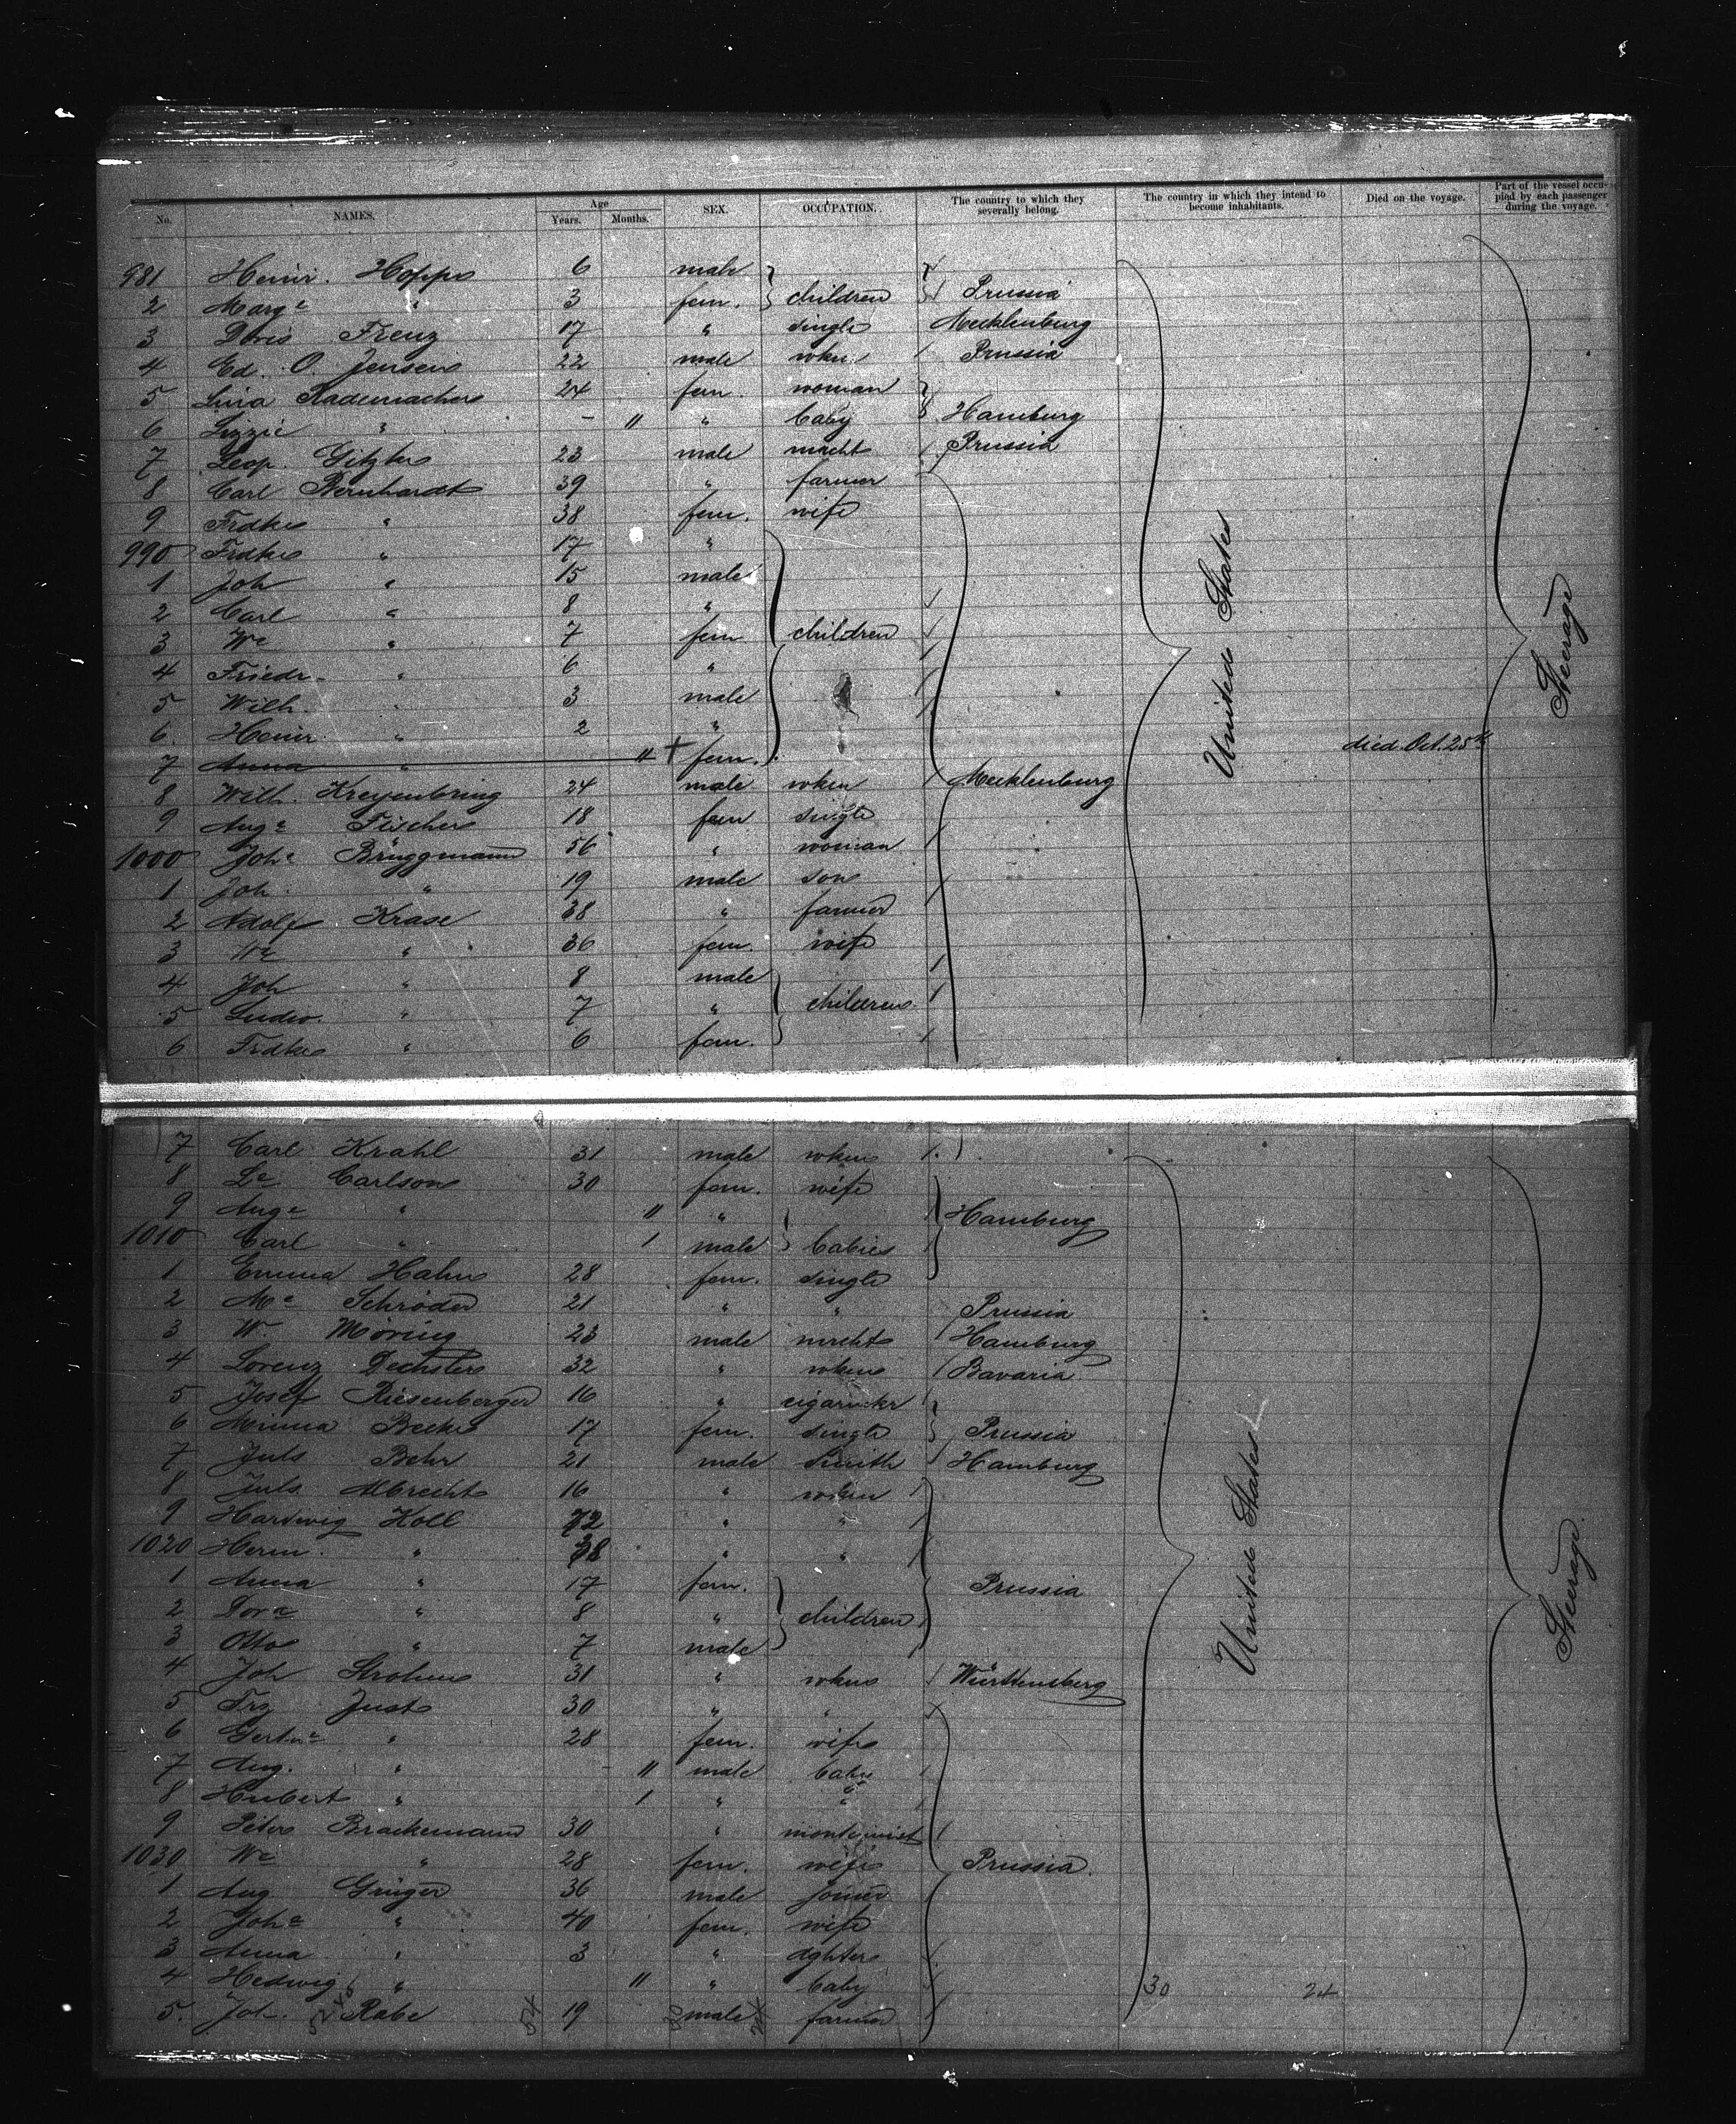 No. NAMES. Age Years. Months. SEX. OCCUPATION. The country to which they severally belong. The country in which they intend to become inhabitants. Died on the voyage. Part of the vessel occupied by each passenger during the voyage.
981 Heinr. Hoppe 6 male
2 Marg.a " 3 fem. children Prussia
3 Doris Frenz 17 " single Mecklenburg
4 Ed. O. Jensen 22 male wkm. Prussia
5 Lina Rademacher 24 fem. woman
6 Lizzie " - 11 " baby Hamburg
7 Leop. Gitzke 23 male mecht Prussia
8 Carl Bernhardt 39 " farmer
9 Frdke " 38 fem. wife
990 Frdke " 17 "
1 Joh " 15 male
2 Carl " 8 "
3 We " 7 fem children
4 Friedr. " 6 "
5 Wilh. " 3 male
6 Heinr. " 2 "
7 Anna " 11 + fem. died Oct. 25th
8 Wilh. Kreyenbring 24 male wkm Mecklenburg
9 Auge Fischer 18 fem single
1000 Johe Brüggmann 56 " woman
1 Joh. " 19 male son
2 Adolf Krase 38 " farmer
3 We " 36 fem. wife
4 Joh " 8 male
5 Ludw. " 7 " children
6 Frdke " 6 fem.
United States
Steerage
7 Carl Krahl 31 male wkm
8 Le Carlson 30 fem. wife
9 Auge " 11 " Hamburg
1010 Carl " 1 male babies
1 Emma Hahn 28 fem. single
2 Me Schröder 21 " " Prussia
3 W. Möring 23 male mecht Hamburg
4 Lorenz Dechsler 32 " wkm Bavaria
5 Josef Riesenberger 16 " cigarmkr
6 Minna Becker 17 fem. single Prussia
7 Juls Behr 21 male smith Hamburg
8 Juls Albrecht 16 " wkm
9 Hartwig Koll 42 " "
1020 Herm. " 38 " "
1 Anna " 17 fem. Prussia
2 Dora " 8 " children
3 Otto " 7 male
4 Joh Strohm 31 " wkm Württemberg
5 Frz Just 30 " "
6 Gertre " 28 fem. wife
7 Aug. " - 11 male baby
8 Hubert " 1 " "
9 Peter Brackemann 30 "
1030 We " 28 fem. wife Prussia
1 Aug Grüger 36 male joiner
2 Johe " 40 fem. wife
3 Anna " 3 " dghter
4 Hedwig " 11 " baby 30 24
5. Joh. Rabe 54 19 male farmer
United States
Steerage.